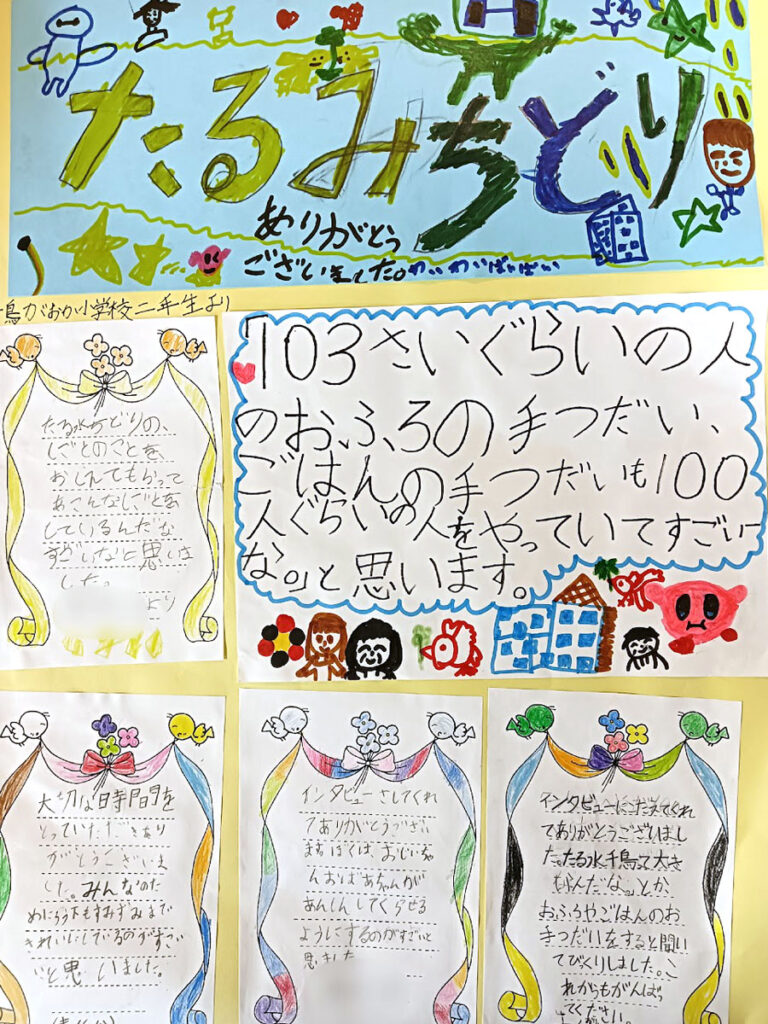 たるみちどり
ありがとう
ございました。わいわいばいばい
鳥がおか小学校二年生より
「103さいぐらいの人
のおふろの手つだい、
ごはんの手つだいも100
人ぐらいの人をやっていてすごい
な。」と思います。
たる水ちどりの、
しごとのことを
おしえてもらって
あんなしごとを
しているんだな
すごいなと思いま
した。
より
大切な時間を
とっていただきあり
がとうございま
した。みんなのた
めにろう下もすみずみまで
きれいにしているのがすご
いと思いました。
インタビューさしてくれ
てありがとうござい
ますぼくは、おじいちゃ
んおばあちゃんが
あんしんしてくらせる
ようにするのがすごいと
思きました
インタビューにこたえてくれ
てありがとうございまし
た。たる水千鳥って大き
いんだな。」とか、
おふろやごはんのお
手つだいをすると聞い
てびっくりしました。こ
れからもがんばっ
てください。